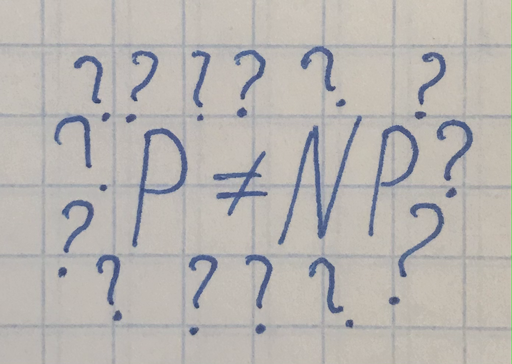 ? ? ? ? ? ?
? P ≠ NP ?
? ?
? ? ? ?